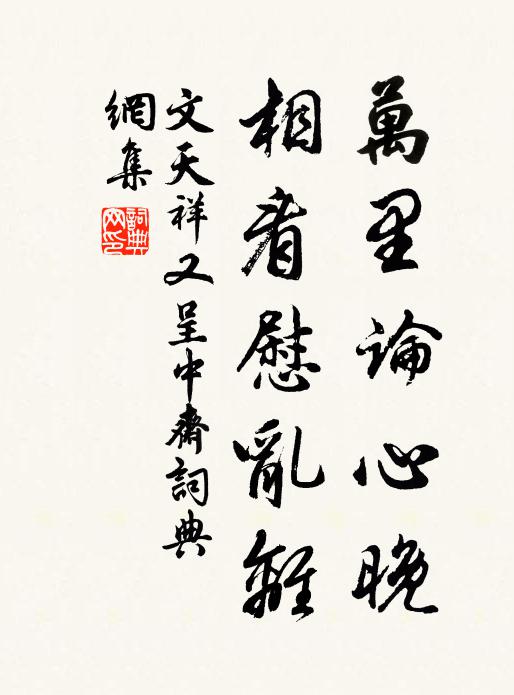 萬里論心晚
相看慰亂離
文天祥又呈中齋詞典
網集
詞典
网印